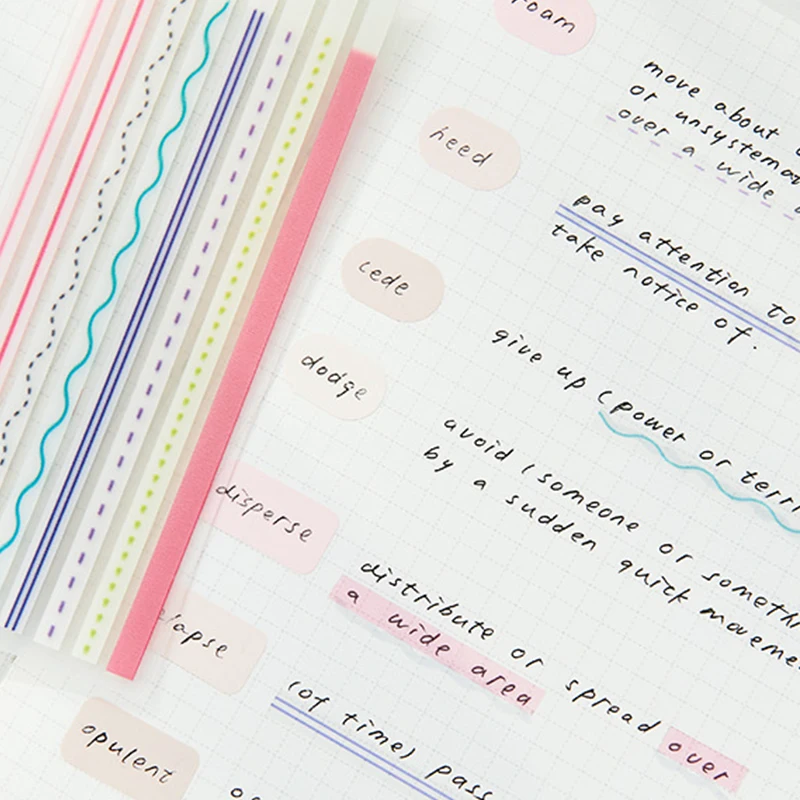 roam
move about
or unsystemat
over a wide
heed
pay attention to
take notice of.
cede
give up (power or terri
dodge
avoid (someone or someth
by a sudden quick moveme
disperse
distribute or spread over
a wide area
elapse
(of time) pass
opulent